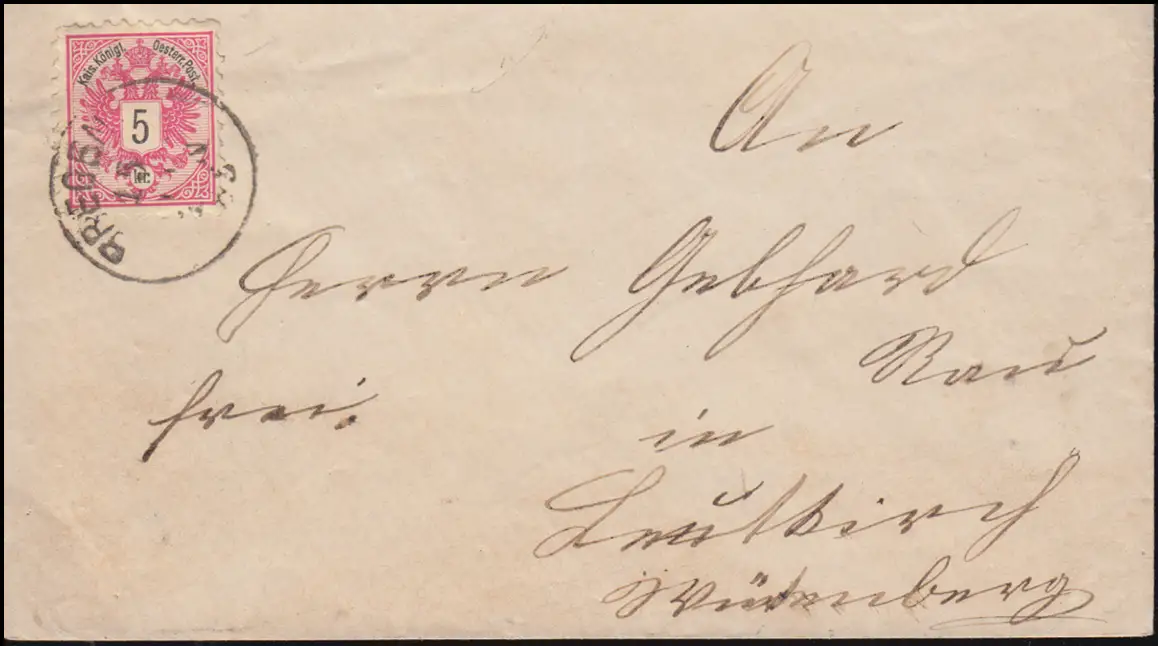 Kais. Königl. Oesterr. Post
5
kr
BREGENZ
An
Herrn Gebhard
Rau
frei.
in
Leutkirch
Würtenberg